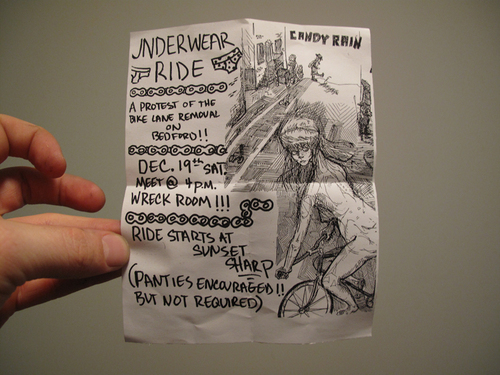 UNDERWEAR
RIDE
A PROTEST OF THE
BIKE LANE REMOVAL
ON
BEDFORD!!
DEC. 19th SAT.
MEET @ 4 P.M.
WRECK ROOM!!!
RIDE STARTS AT
SUNSET
SHARP
(PANTIES ENCOURAGED!!
BUT NOT REQUIRED)
CANDY RAIN